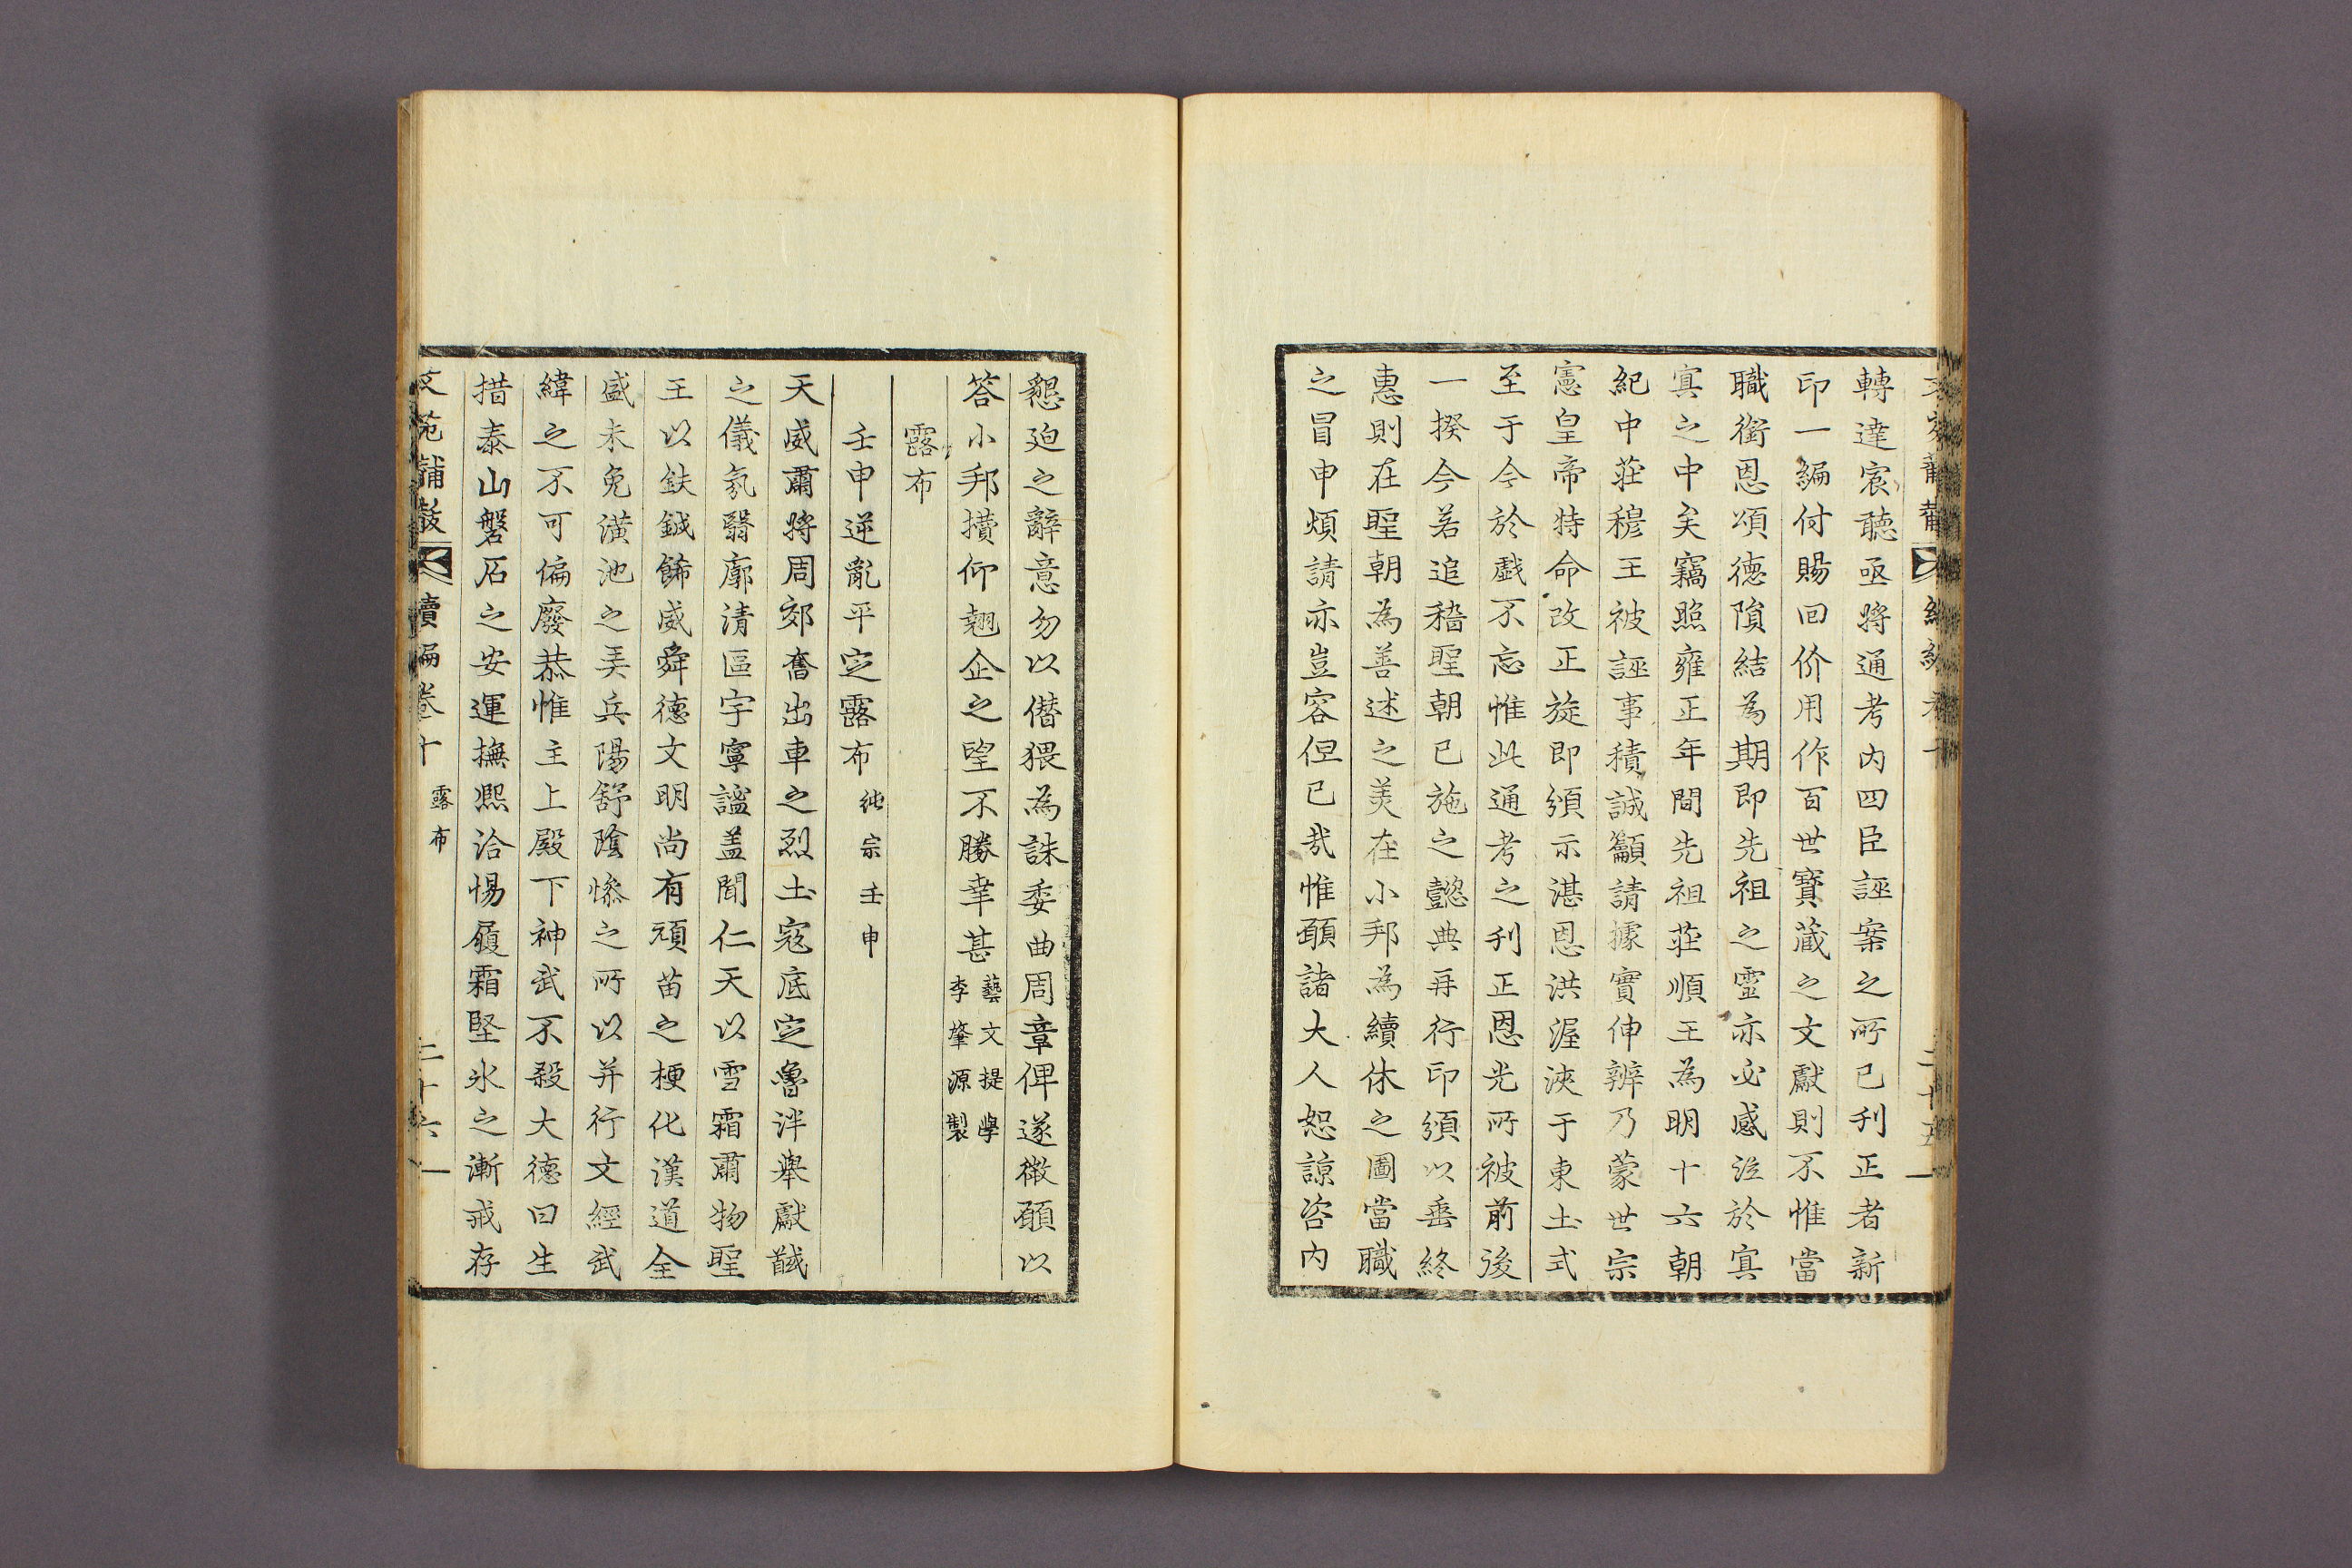 轉達宸聽亟將通考内四臣誣案之所已刋正者新
印一編付賜回价用作百世寶蔵之文獻則不惟當
職銜恩頌徳隕結為期即先祖之霊亦必感泣於寘
寘之中矣竊照雍正年間先祖莊順王為明十六朝
紀中莊穆王被誣事積誠籲請據實伸辨乃蒙世宗
憲皇帝特命改正旋即頒示湛恩洪渥浹于東土式
至于今於戱不忘惟此通考之刋正恩光所被前後
一揆今若追稽聖朝已施之懿典再行印頒以垂終
惠則在聖朝為善述之美在小邦為續休之圖當職
之冒申煩請亦豈容但已哉惟頋諸大人恕諒咨内
懇廹之辭意勿以僭猥為誅委曲周章俾遂微頋以
答小邦攢仰翹企之望不勝幸甚 藝文提學
李肇源製
露布
壬申逆亂平定露布 純宗壬申
天威肅將周郊奮出車之烈土寇底定魯泮舉獻馘
之儀氛翳廓清區宇寧謐盖聞仁天以雪霜肅物聖
王以鈇鉞餙威舜徳文明尚有頑苗之梗化漢道全
盛未免潢池之弄兵陽舒陰慘之所以并行文經武
緯之不可偏廢恭惟主上殿下神武不殺大徳曰生
措泰山磐石之安運撫熙洽惕履霜堅氷之漸戒存
文苑黼黻 續編卷十 露布 二十六